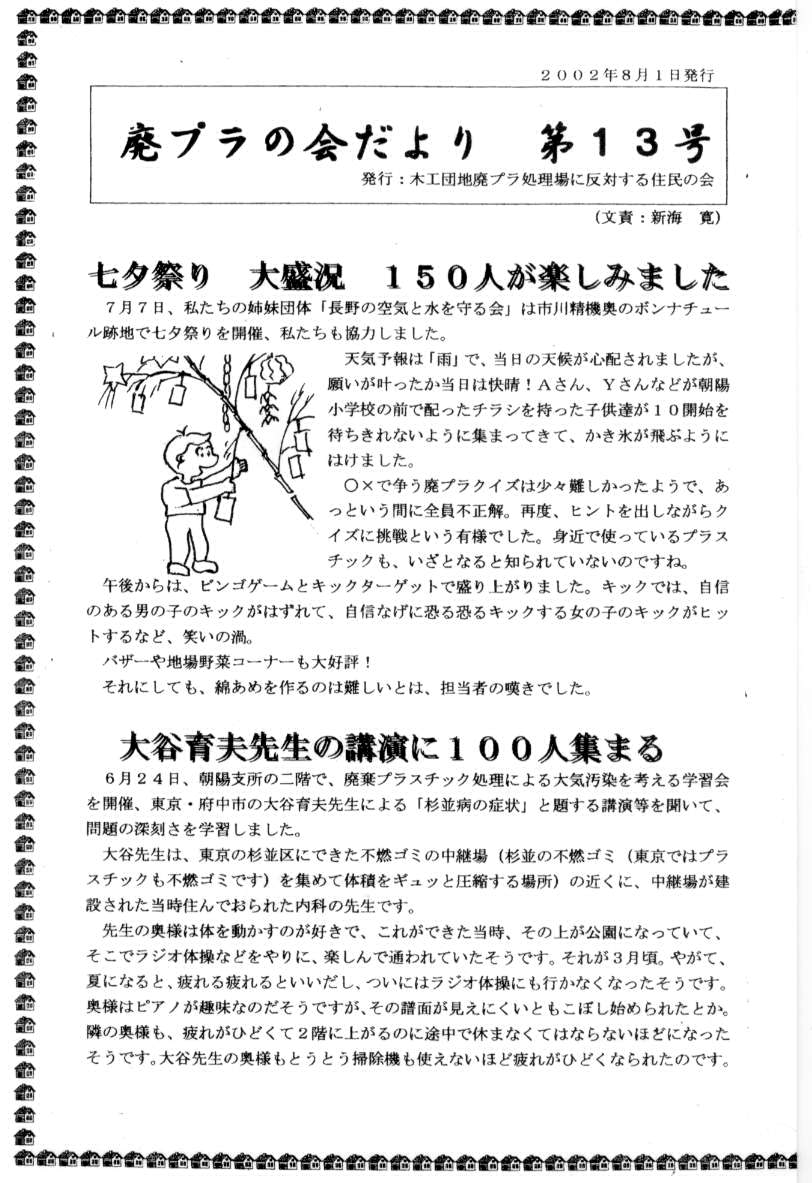 ２００２年８月１日発行
廃プラの会だより　第１３号
発行：木工団地廃プラ処理場に反対する住民の会
（文責：新海　寛）
七夕祭り　大盛況　１５０人が楽しみました
７月７日、私たちの姉妹団体「長野の空気と水を守る会」は市川精機奥のボンナチュー
ル跡地で七夕祭りを開催、私たちも協力しました。
天気予報は「雨」で、当日の天候が心配されましたが、
願いが叶ったか当日は快晴！Ａさん、Ｙさんなどが朝陽
小学校の前で配ったチラシを持った子供達が１０開始を
待ちきれないように集まってきて、かき氷が飛ぶように
はけました。
○×で争う廃プラクイズは少々難しかったようで、あ
っという間に全員不正解。再度、ヒントを出しながらク
イズに挑戦という有様でした。身近で使っているプラス
チックも、いざとなると知られていないのですね。
午後からは、ビンゴゲームとキックターゲットで盛り上がりました。キックでは、自信
のある男の子のキックがはずれて、自信なげに恐る恐るキックする女の子のキックがヒッ
トするなど、笑いの渦。
バザーや地場野菜コーナーも大好評！
それにしても、綿あめを作るのは難しいとは、担当者の嘆きでした。
大谷育夫先生の講演に１００人集まる
６月２４日、朝陽支所の二階で、廃棄プラスチック処理による大気汚染を考える学習会
を開催、東京・府中市の大谷育夫先生による「杉並病の症状」と題する講演等を聞いて、
問題の深刻さを学習しました。
大谷先生は、東京の杉並区にできた不燃ゴミの中継場（杉並の不燃ゴミ（東京ではプラ
スチックも不燃ゴミです）を集めて体積をギュッと圧縮する場所）の近くに、中継場が建
設された当時住んでおられた内科の先生です。
先生の奥様は体を動かすのが好きで、これができた当時、その上が公園になっていて、
そこでラジオ体操などをやりに、楽しんで通われていたそうです。それが３月頃。やがて、
夏になると、疲れる疲れるといいだし、ついにはラジオ体操にも行かなくなったそうです。
奥様はピアノが趣味なのだそうですが、その譜面が見えにくいともこぼし始められたとか。
隣の奥様も、疲れがひどくて２階に上がるのに途中で休まなくてはならないほどになった
そうです。大谷先生の奥様もとうとう掃除機も使えないほど疲れがひどくなられたのです。